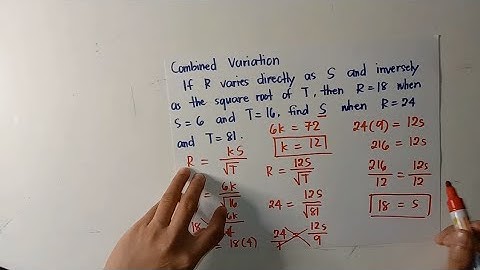 Combined Variation
If R varies directly as S and inversely
as the square root of T, then R=18 when
S=6 and T=16, find S when R=24
and T=81.
R = kS/√T
= 6k/√16
18 = 6k/4
= 18(4)
6k = 72
k = 12
R = 12S/√T
24 = 12s/√81
24/1 = 12s/9
24(9) = 12s
216 = 12s
216/12 = 12s/12
18 = s